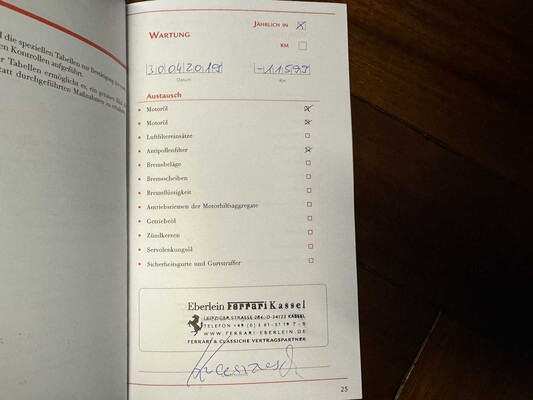 d die speziellen Tabellen zur Bestätigung der
en Kontrollen aufgeführt.
r Tabellen ermöglicht es, ein genaues Bild
tatt durchgeführten Maßnahmen zu erhalten
JÄHRLICH IN
WARTUNG
KM
30042019
-11599
Datum
Km
Austausch
Motoröl
Motoröl
Luftfiltereinsätze
Antipollenfilter
Bremsbeläge
Bremsscheiben
Bremsflüssigkeit
Antriebsriemen der Motorhilfsaggregate
Getriebeöl
Zündkerzen
Servolenkungsöl
Sicherheitsgurte und Gurtstraffer
Eberlein Ferrari Kassel
LEIPZIGER STRASSE 284 · D-34123 KASSEL
TELEFON +49 (0) 5 61-51
WWW.FERRARI-EBERLEIN.DE
FERRARI & CLASSICHE VERTRAGSPARTNER
25